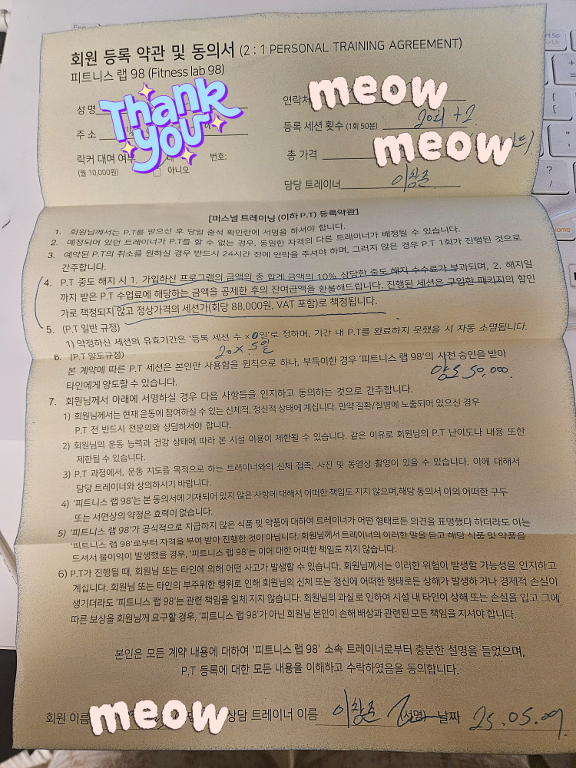 회원 등록 약관 및 동의서 (2 : 1 PERSONAL TRAINING AGREEMENT)
피트니스 랩 98 (Fitness lab 98)
성 명
연락처
meow
Thank you
등록 세션 횟수 (1회 50분) 20회 +2
주 소
meow
락커 대여 여부
번호:
총 가격
(월 10,000원)
아니오
담당 트레이너 이창준
[퍼스널 트레이닝 (이하 P.T) 등록약관]
1. 회원님께서는 P.T를 받으신 후 당일 출석 확인란에 서명을 하셔야 합니다.
2. 예정되어 있던 트레이너가 P.T를 할 수 없는 경우, 동일한 자격의 다른 트레이너가 배정될 수 있습니다.
3. 예약된 P.T의 취소를 원하실 경우 반드시 24시간 전에 연락을 주셔야 하며, 그러지 않은 경우 P.T 1회가 진행된 것으로
간주합니다.
4. P.T 중도 해지 시 1. 가입하신 프로그램의 금액의 총 합계 금액의 10% 상당한 중도 해지 수수료가 부과되며, 2. 해지일
까지 받은 P.T 수업료에 해당하는 금액을 공제한 후의 잔여금액을 환불해드립니다. 진행된 세션은 구입한 패키지의 할인
가로 책정되지 않고 정상가격의 세션가(회당 88,000원, VAT 포함)로 책정됩니다.
5. (P.T 일반 규정)
1) 약정하신 세션의 유효기간은 '등록 세션 수 × 일'로 정하며, 기간 내 P.T를 완료하지 못했을 시 자동 소멸됩니다.
20 × 5일
6. (P.T 양도규정)
본 계약에 따른 P.T 세션은 본인만 사용함을 원칙으로 하나, 부득이한 경우 '피트니스 랩 98'의 사전 승인을 받아
타인에게 양도할 수 있습니다.
양도 50,000.
7. 회원님께서 아래에 서명하실 경우 다음 사항들을 인지하고 동의하는 것으로 간주합니다.
1) 회원님께서는 현재 운동에 참여하실 수 있는 신체적, 정신적 상태에 계십니다. 만약 질환/질병에 노출되어 있으신 경우
P.T 전 반드시 전문의와 상담하셔야 합니다.
2) 회원님의 운동 능력과 건강 상태에 따라 본 시설 이용이 제한될 수 있습니다. 같은 이유로 회원님의 P.T 난이도나 내용 또한
제한될 수 있습니다.
3) P.T 과정에서, 운동 지도를 목적으로 하는 트레이너와의 신체 접촉, 사진 및 동영상 촬영이 있을 수 있습니다. 이에 대해서
담당 트레이너와 상의하시기 바랍니다.
4) '피트니스 랩 98'는 본 동의서에 기재되어 있지 않은 사항에 대해서 어떠한 책임도 지지 않으며,해당 동의서 이외 어떠한 구두
또는 서면상의 약정은 효력이 없습니다.
5) '피트니스 랩 98'가 공식적으로 지급하지 않은 식품 및 약품에 대하여 트레이너가 어떤 형태로든 의견을 표명했다 하더라도 이는
'피트니스 랩 98'로부터 자격을 부여 받아 진행한 것이 아닙니다. 회원님께서 트레이너의 이러한 말을 듣고 해당 식품 및 약품을
드셔서 불이익이 발생했을 경우, '피트니스 랩 98'는 이에 대한 어떠한 책임도 지지 않습니다.
6) P.T가 진행될 때, 회원님 또는 타인에 의해 어떤 사고가 발생할 수 있습니다. 회원님께서는 이러한 위험이 발생할 가능성을 인지하고
계십니다. 회원님 또는 타인의 부주의한 행위로 인해 회원님의 신체 또는 정신에 어떠한 형태로든 상해가 발생하거나 경제적 손실이
생기더라도 '피트니스 랩 98'는 관련 책임을 일체 지지 않습니다. 회원님의 과실로 인하여 시설 내 타인이 상해 또는 손실을 입고 그에
따른 보상을 회원님께 요구할 경우, '피트니스 랩 98'가 아닌 회원님 본인이 손해 배상과 관련된 모든 책임을 지셔야 합니다.
본인은 모든 계약 내용에 대하여 '피트니스 랩 98' 소속 트레이너로부터 충분한 설명을 들었으며,
P.T 등록에 대한 모든 내용을 이해하고 수락하였음을 동의합니다.
회원 이름 meow 상담 트레이너 이름 이창준 (서명) 날짜 25.05.09.